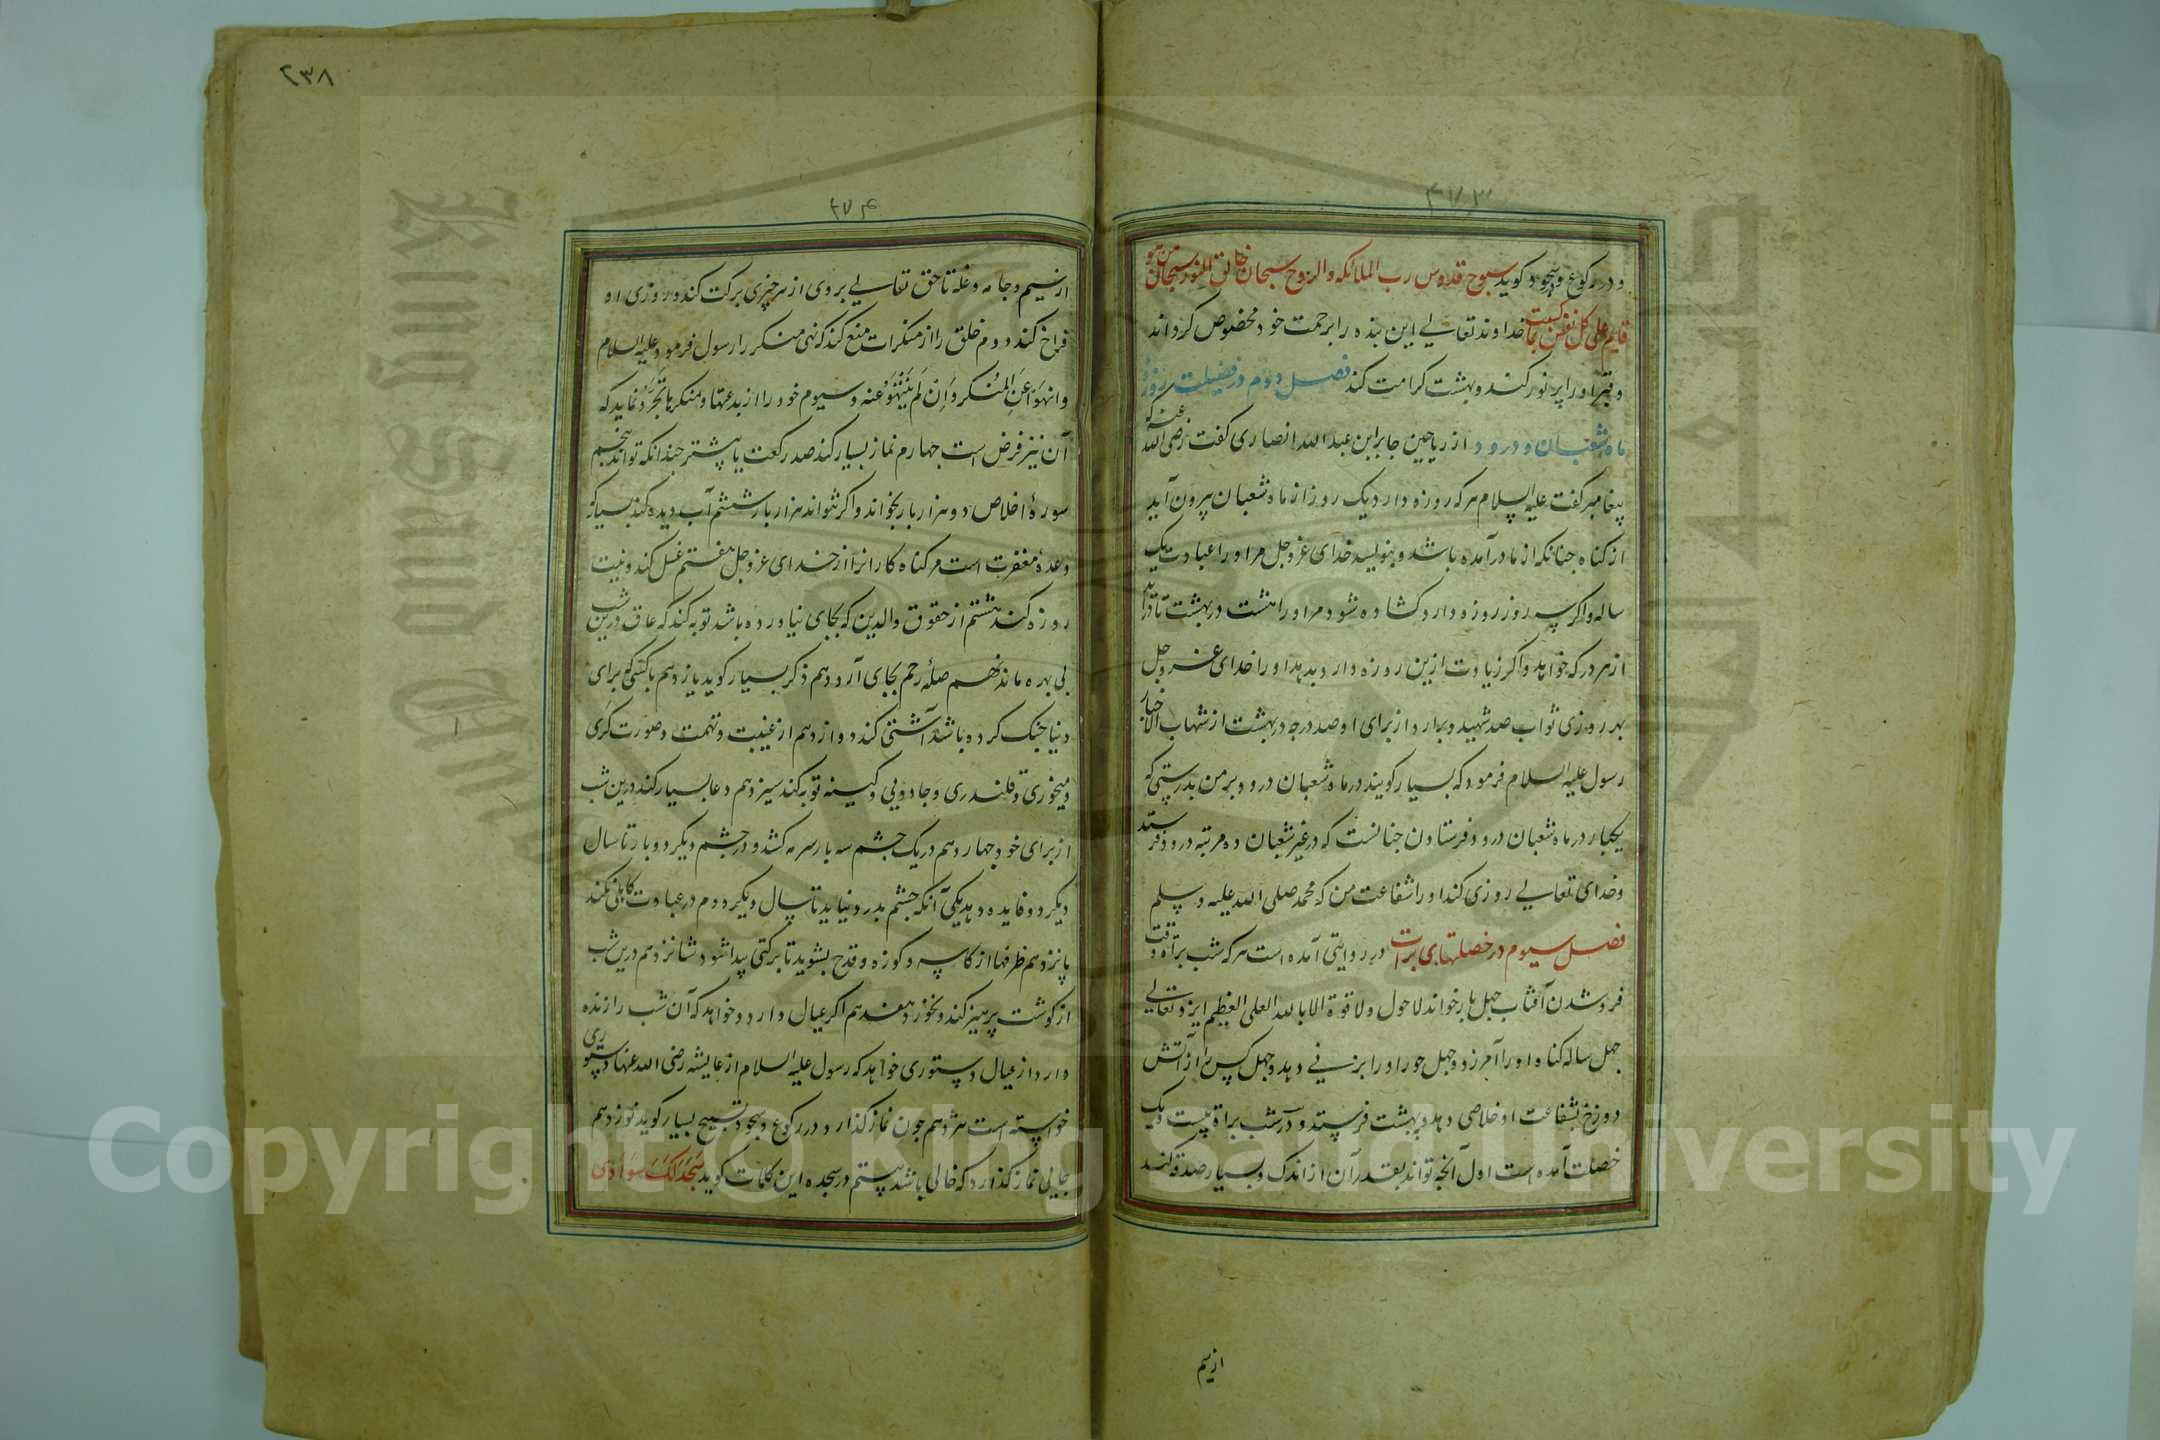 ۴۷۳
و در رکوع و سجود کوید سبوح قدوس رب الملائکه والروح سبحان خالق النور سبحان من هو
قایم علی کل نفس بما کسبت خداوند تعالی این بنده را برحمت خود مخصوص کرداند
و قبر او را پر نور کند و بهشت کرامت کند فصل دوم در فضیلت روزهٔ
ماه شعبان و درود از ریاحین جابر ابن عبد الله انصاری کفت رضی الله عنه که
پیغامبر کفت علیه السلام هر که روزه دارد یک روز از ماه شعبان بیرون آید
از کناه جنانکه از مادر آمده باشد و بنویسد خدای عز و جل مر او را عبادت یک
ساله و اکر سه روز روزه دارد کشاده شود مر او را هشت در بهشت تا در آید
از هر در که خواهد و اکر زیادت ازین روزه دارد بدهد او را خدای عز و جل
بهر روزی ثواب صد شهید و برارد از برای او صد درجه در بهشت از شهاب الاخبار
رسول علیه السلام فرمود که بسیار کویند در ماه شعبان درود بر من بدرستی که
یکبار در ماه شعبان درود فرستادن جنانست که در غیر شعبان ده مرتبه درود فرستد
و خدای تعالی روزی کند او را شفاعت من که محمد صلی الله علیه و سلم
فصل سیوم در خصلتهای برات در روایتی آمده است هر که شب برآة وقت
فرو شدن آفتاب جهل بار خواند لا حول ولا قوة الا بالله العلی العظیم ایزد تعالی
جهل ساله کناه او را آمرزد و جهل حور او را بزنی دهد و جهل کس را از آتش
دوزخ بشفاعت او خلاصی دهد و ببهشت فرستد و در شب براة بیست و یک
خصلت آمده است اول آنجه تواند بقدر آن از اندک و بسیار صدقه کند
از سیم
۲۳۸
۴۷۴
از سیم و جامه و غله تا حق تعالی بروی از هر چیزی برکت کند و روزی او
فراخ کند دوم خلق را از منکرات منع کند که نهی منکر را رسول فرمود علیه السلام
وانهوا عن المنکر وان لم ینتهوا عنه و سیوم خود را از بدعتها و منکرها تجرد نماید که
آن نیز فرض است جهارم نماز بسیار کند صد رکعت یا بیشتر جندانکه تواند بنجم
سورهٔ اخلاص دو هزار بار بخواند و اکر نتواند هزار بار ششم آب دیده کند بسیار که
وعدهٔ مغفرت است مر کناه کارانرا از خدای عز و جل هفتم غسل کند و نیت
روزه کند هشتم از حقوق والدین که بجای نیاورده باشد توبه کند که عاق درین شب
بی بهره ماند نهم صلهٔ رحم بجای آرد دهم ذکر بسیار کوید یازدهم با کسی که برای
دنیا جنک کرده باشد آشتی کند دوازدهم از غیبت و تهمت و صورت کری
و میخوری و قلندری و جادویی و کینه توبه کند سیزدهم دعا بسیار کند درین شب
از برای خود جهاردهم در یک جشم سه بار سرمه کشد و در جشم دیکر دو بار تا سال
دیکر دو فایده دهد یکی آنکه جشم بدرد نیاید تا سال دیکر دوم در عبادت کاهلی نکند
پانزدهم ظرفها از کاسه و کوزه و قدح بشوید تا برکتی پیدا شود شانزدهم درین شب
از کوشت پرهیز کند و نخورد هفدهم اکر عیال دارد و خواهد که آن شب را زنده
دارد از عیال دستوری خواهد که رسول علیه السلام از عایشه رضی الله عنها دستوری
خواسته است هژدهم جون نماز کذارد در رکوع و سجود تسبیح بسیار کوید نوزدهم
جایی نماز کذارد که خالی باشد بیستم در سجده این کلمات کوید سجد لک سوادی